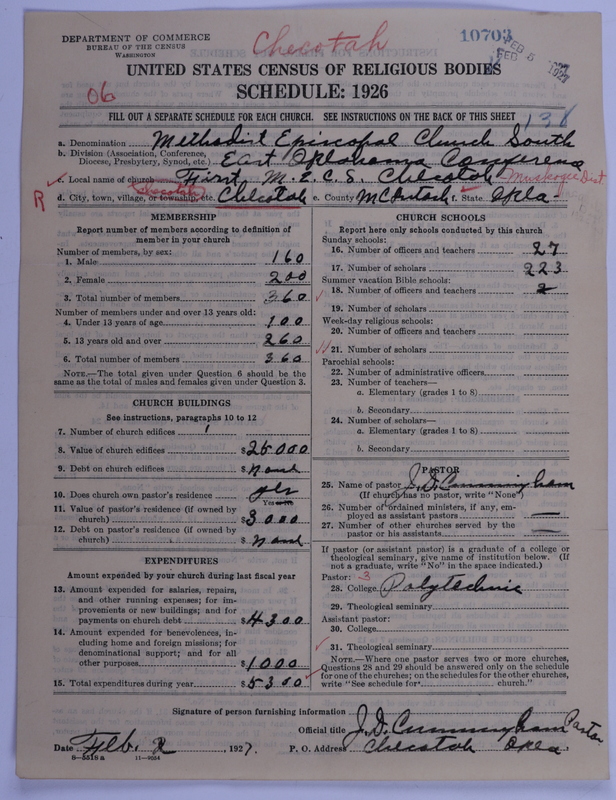 DEPARTMENT OF COMMERCE
BUREAU OF THE CENSUS
WASHINGTON
Checotah
10703
FEB 5
UNITED STATES CENSUS OF RELIGIOUS BODIES
SCHEDULE: 1926
06
FILL OUT A SEPARATE SCHEDULE FOR EACH CHURCH. SEE INSTRUCTIONS ON THE BACK OF THIS SHEET
138
a. Denomination Methodist Episcopal Church South
b. Division (Association, Conference, Diocese, Presbytery, Synod, etc.) East Oklahoma Conference
c. Local name of church First M. E. C. S. Checotah Muskogee Dist
Checotah
R d. City, town, village, or township, etc. Checotah e. County McIntosh f. State Okla
MEMBERSHIP
Report number of members according to definition of member in your church
Number of members, by sex:
1. Male 160
2. Female 200
3. Total number of members 360
Number of members under and over 13 years old:
4. Under 13 years of age 100
5. 13 years old and over 260
6. Total number of members 360
NOTE.—The total given under Question 6 should be the
same as the total of males and females given under Question 3.
CHURCH BUILDINGS
See instructions, paragraphs 10 to 12
7. Number of church edifices 1
8. Value of church edifices $25000
9. Debt on church edifices $None
10. Does church own pastor's residence yes
Yes
11. Value of pastor's residence (if owned by
church) $3000
12. Debt on pastor's residence (if owned by
church) $None
EXPENDITURES
Amount expended by your church during last fiscal year
13. Amount expended for salaries, repairs,
and other running expenses; for im-
provements or new buildings; and for
payments on church debt $4300
14. Amount expended for benevolences, in-
cluding home and foreign missions; for
denominational support; and for all
other purposes $1000
15. Total expenditures during year $5300
CHURCH SCHOOLS
Report here only schools conducted by this church
Sunday schools:
16. Number of officers and teachers 27
17. Number of scholars 223
Summer vacation Bible schools:
18. Number of officers and teachers
19. Number of scholars
Week-day religious schools:
20. Number of officers and teachers
21. Number of scholars
Parochial schools:
22. Number of administrative officers
23. Number of teachers—
a. Elementary (grades 1 to 8)
b. Secondary
24. Number of scholars—
a. Elementary (grades 1 to 8)
b. Secondary
PASTOR
25. Name of pastor J. D. Cunningham
(If church has no pastor, write "None")
26. Number of ordained ministers, if any, em-
ployed as assistant pastors —
27. Number of other churches served by the
pastor or his assistants —
If pastor (or assistant pastor) is a graduate of a college or
theological seminary, give name of institution below. (If
not a graduate, write "No" in the space indicated.)
Pastor: 3
28. College Polytechnic
29. Theological seminary
Assistant pastor:
30. College
31. Theological seminary
NOTE.—Where one pastor serves two or more churches,
Questions 28 and 29 should be answered only on the schedule
for one of the churches; on the schedules for the other churches,
write "See schedule for church."
Signature of person furnishing information J. D. Cunningham
Official title Pastor
Date Feb. 2, 1927. P. O. Address Checotah Okla.
8—5518 a 11—9054